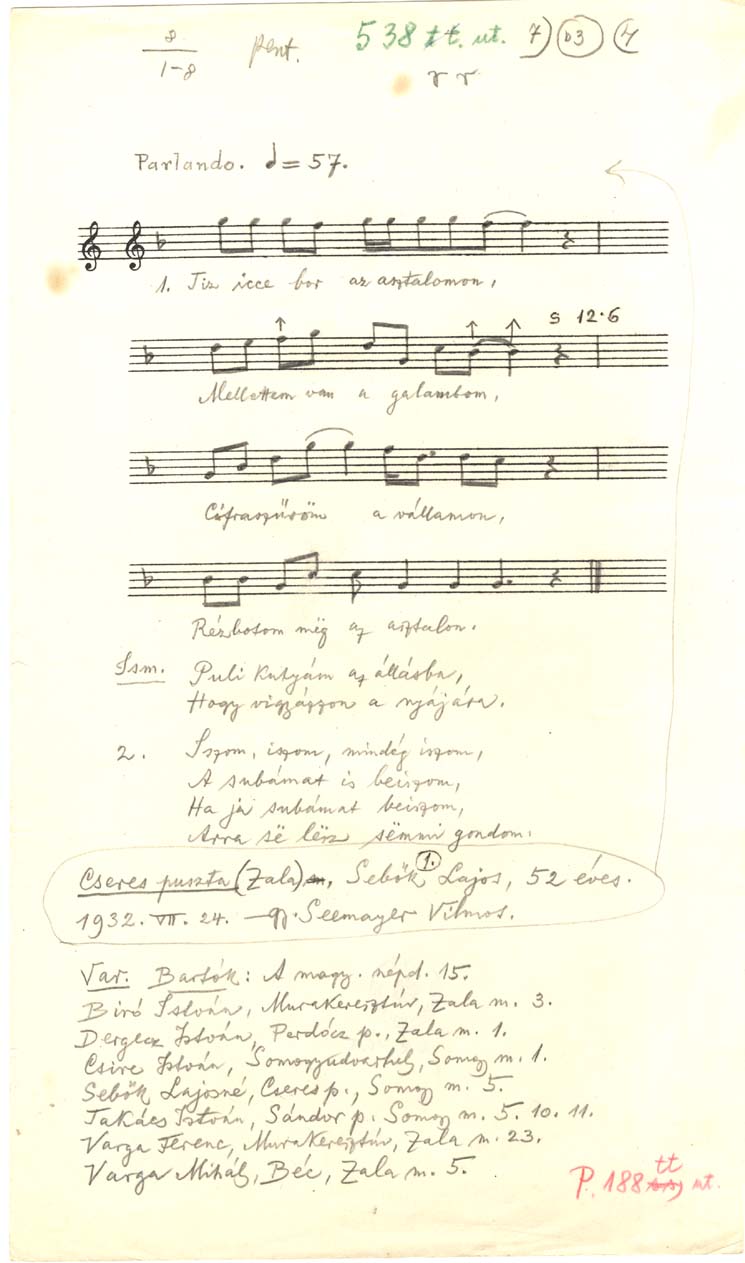 8 pent. 538 tt. ut. 7) (b3) (4
1-8
r r
Parlando. = 57.
1. Tiz icce bor az asztalomon,
S 12·6
Mellettem van a galambom,
Cifraszűröm a vállamon,
Rézbotom mëg az asztalon.
Ism. Puli kutyám az állásba,
Hogy vigyázzon a nyájára.
2. Iszom, iszom, mindég iszom,
A subámat is beiszom,
Ha ja subámat beiszom,
Arra së lësz sëmmi gondom.
Cseres puszta (Zala) m, Sebők 1. Lajos, 52 éves.
1932. VII. 24. Seemayer Vilmos.
Var. Bartók: A magy. népd. 15.
Biró István, Murakeresztúr, Zala m. 3.
Dergecz István, Perdócz p., Zala m. 1.
Csire István, Somogyudvarhely, Somogy m. 1.
Sebők Lajosné, Cseres p., Somogy m. 5.
Takács István, Sándor p. Somogy m. 5. 10. 11.
Varga Ferenc, Murakeresztúr, Zala m. 23.
Varga Mihály, Béc, Zala m. 5.
P. 188 tt ut.